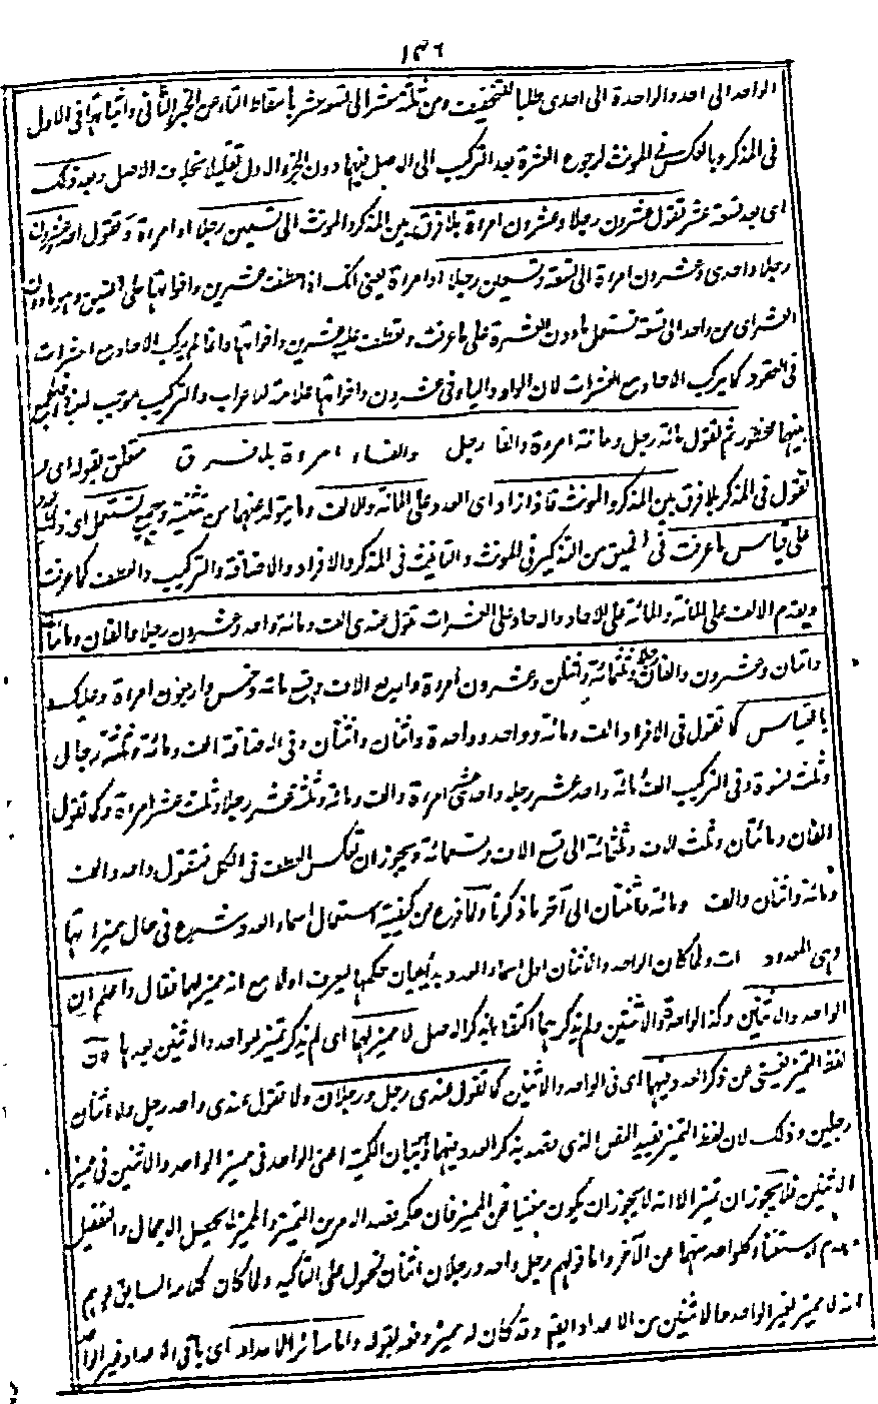 ١٣٦
الواحد الى احد والواحدة الى احدى طلبا للتخفيف ومن ثلثة عشر الى تسعة عشر باسقاط التاء من الجزء الثانى واثباتها فى الاول
فى المذكر وبالعكس فى المونث لرجوع العشرة بعد التركيب الى الاصل فيها دون الجزء الاول تقليلا بخلاف الاصل وبعد ذلك
اى بعد تسعة عشر تقول عشرون رجلا وعشرون امرأة بلا فرق بين المذكر والمونث الى تسعين رجلا او امرأة وتقول احد وعشرون
رجلا واحدى وعشرون امرأة الى تسعة وتسعين رجلا او امرأة يعنى انك اذا عطفت عشرين واخواتها على النيف وهو ما دون
العشر اى من واحد الى تسعة تستعمل ما دون العشرة على ما عرفت وتعطف عليه عشرين واخواتها وانما لم يركب الاحاد مع العشرات
فى العقود كما يركب الاحاد مع العشرات لان الواو والياء فى عشرون واخواتها علامة للاعراب والتركيب موجب للبناء
بينهما محظور ثم تقول مائة رجل ومائة امرأة والفا رجل والفا امرأة بلا فرق متعلق بقوله اى
تقول فى المذكر بلا فرق بين المذكر والمونث فاذا زاد اى العدد على المائة والالف وما يتولد عنهما من تثنية وجمع يستعمل اى ذلك
على قياس ما عرفت فى النيف من التذكير فى المونث والتانيث فى المذكر والافراد والاضافة والتركيب والعطف كما عرفت
ويقدم الالف على المائة والمائة على الاحاد والاحاد على العشرات تقول عندى الف ومائة واحد وعشرون رجلا والفان ومائتان
واثنان وعشرون رجلا والفان وثلثمائة واثنتان وعشرون امرأة واربع الاف وتسع مائة وخمس واربعون امرأة وعليك
بالقياس كما تقول فى الافراد الف ومائة وواحد وواحدة واثنان واثنتان وفى الاضافة الف ومائة وثلثة رجال
وثلث نسوة وفى التركيب الف ومائة واحد عشر رجلا واحدى عشر امرأة والف ومائة وثلثة عشر رجلا وثلث عشر امرأة وكما تقول
الفان ومائتان وثلث الاف وثلثمائة الى تسع الاف وتسعمائة ويجوز ان تعكس العطف فى الكل فتقول واحد والف
ومائة واثنان والف ومائة مائتان الى آخر ما ذكرنا ولما فرغ من كيفية استعمال اسماء العدد شرع فى حال مميزاتها
وهى المعدودات ولما كان الواحد والاثنان اول اسماء العدد بدأ ببيان حكمهما ليعرف اولا مع انه مميز لهما فقال واعلم ان
الواحد والاثنين وكذا الواحدة والاثنتين ولم يذكرهما اكتفاء بذكر الاصل لا مميز لهما اى لم يذكر تمييز الواحد والاثنين بعدهما لان
لفظ التمييز يغنى عن ذكر العدد فيهما اى فى الواحد والاثنين كما تقول عندى رجل ورجلان ولا تقول عندى واحد رجل ولا اثنان
رجلين وذلك لان لفظ التمييز يفيد النص الذى يقصد بذكر العدد فيهما وبيان الكمية اعنى الواحد فى مميز الواحد والاثنين فى مميز
الاثنين فلا يجوز ان تميز الا انه لا يجوز ان يكون مغنيا عن المميز فان حكم تعدد الامرين التمييز والمميز لتحصيل الاجمال والتفصيل
وعدم استغناء كل واحد منهما عن الآخر واما قولهم رجل واحد ورجلان اثنان فمحمول على التاكيد ولما كان كلامه السابق يوهم
انه لا مميز لغير الواحد والاثنين من الاعداد ايضا وقد كان له مميز دفعه بقوله واما سائر الاعداد اى باقى الاعداد غير الواحد